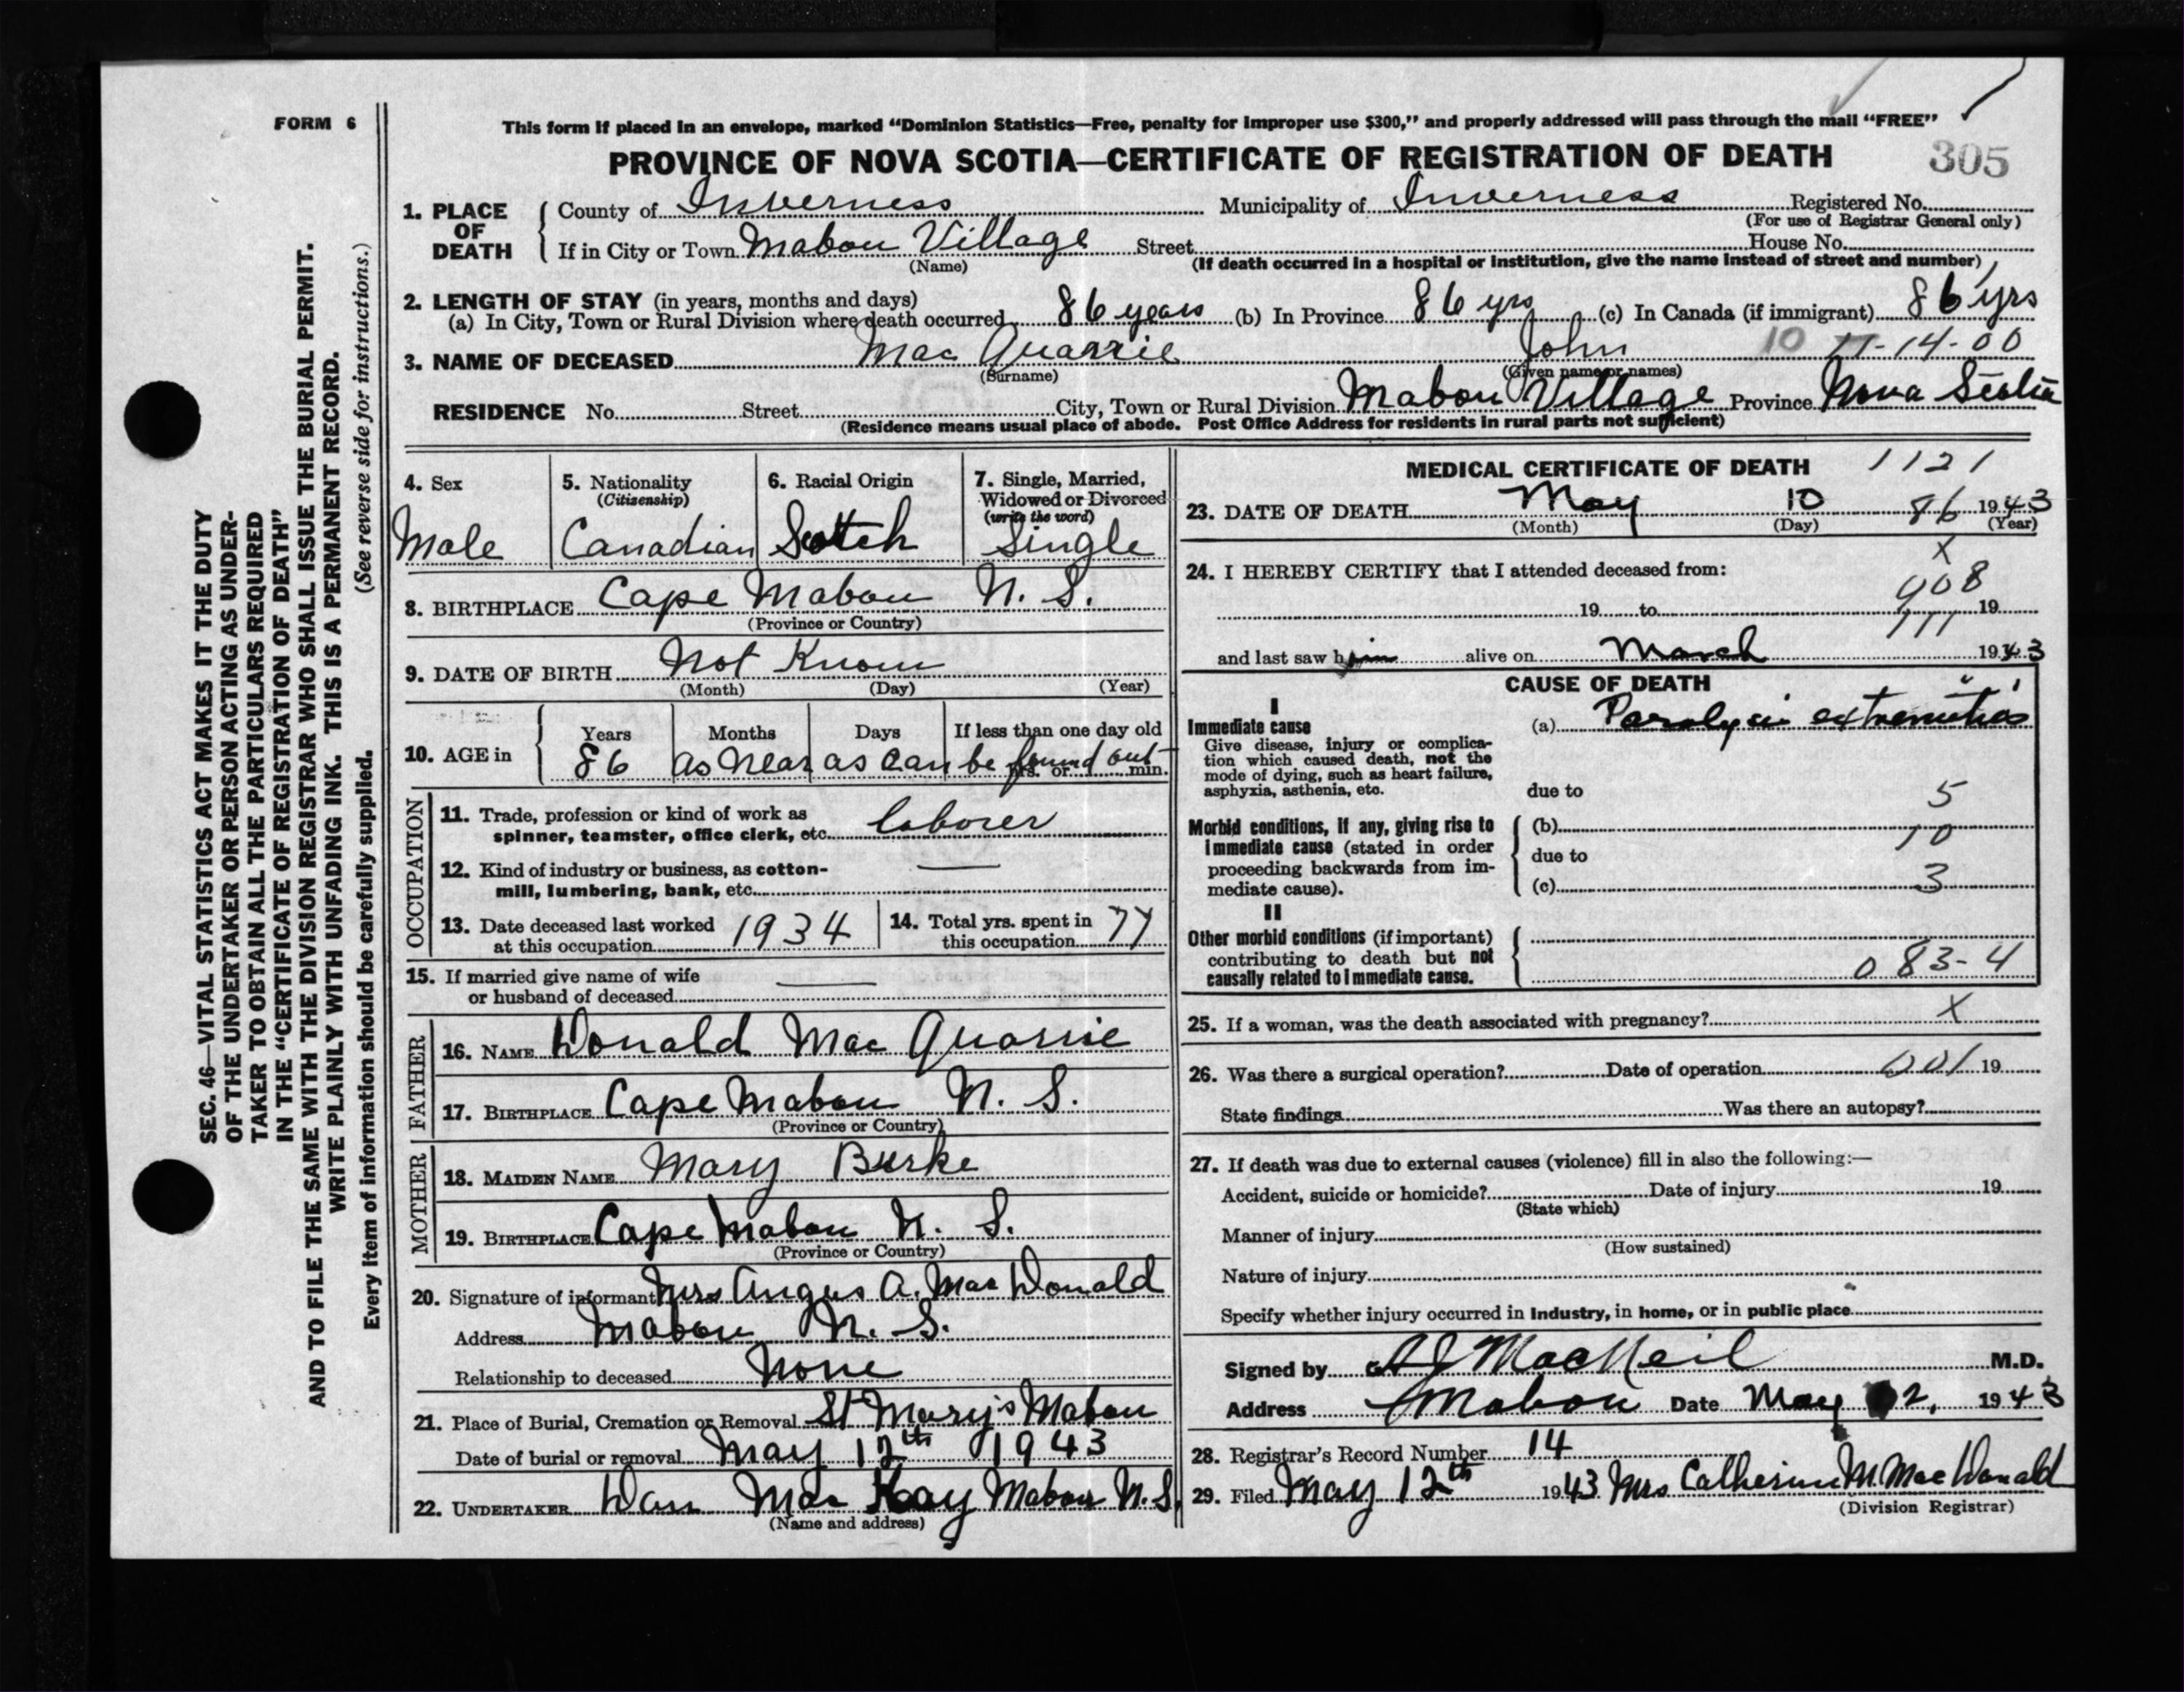 FORM 6
This form if placed in an envelope, marked "Dominion Statistics—Free, penalty for improper use $300," and properly addressed will pass through the mail "FREE"
PROVINCE OF NOVA SCOTIA—CERTIFICATE OF REGISTRATION OF DEATH
305
1. PLACE OF DEATH
County of Inverness Municipality of Inverness Registered No.
(For use of Registrar General only)
If in City or Town Mabou Village Street House No.
(Name) (If death occurred in a hospital or institution, give the name instead of street and number)
2. LENGTH OF STAY (in years, months and days)
(a) In City, Town or Rural Division where death occurred 86 years (b) In Province 86 yrs (c) In Canada (if immigrant) 86 yrs
3. NAME OF DECEASED Mac Quarrie John 10 11-14-00
(Surname) (Given name or names)
RESIDENCE No. Street City, Town or Rural Division Mabou Village Province Nova Scotia
(Residence means usual place of abode. Post Office Address for residents in rural parts not sufficient)
4. Sex
Male
5. Nationality
(Citizenship)
Canadian
6. Racial Origin
Scotch
7. Single, Married,
Widowed or Divorced
(write the word)
Single
8. BIRTHPLACE Cape Mabou N. S.
(Province or Country)
9. DATE OF BIRTH Not Know
(Month) (Day) (Year)
10. AGE in
Years Months Days If less than one day old
86 as near as can be found out
hrs. or min.
OCCUPATION
11. Trade, profession or kind of work as
spinner, teamster, office clerk, etc. laborer
12. Kind of industry or business, as cotton-
mill, lumbering, bank, etc. —
13. Date deceased last worked
at this occupation 1934
14. Total yrs. spent in
this occupation 77
15. If married give name of wife
or husband of deceased —
FATHER
16. NAME Donald Mac Quarrie
17. BIRTHPLACE Cape Mabou N. S.
(Province or Country)
MOTHER
18. MAIDEN NAME Mary Burke
19. BIRTHPLACE Cape Mabou N. S.
(Province or Country)
20. Signature of informant Mrs Angus A. Mac Donald
Address Mabou N. S.
Relationship to deceased None
21. Place of Burial, Cremation or Removal St Mary's Mabou
Date of burial or removal May 12th 1943
22. UNDERTAKER Dan Mac Kay Mabou N.S.
(Name and address)
MEDICAL CERTIFICATE OF DEATH 1121
23. DATE OF DEATH May 10 86 1943
(Month) (Day) (Year)
X
24. I HEREBY CERTIFY that I attended deceased from:
908
19 to 19
111
and last saw him alive on March 1943
CAUSE OF DEATH
I
Immediate cause
Give disease, injury or complica-
tion which caused death, not the
mode of dying, such as heart failure,
asphyxia, asthenia, etc.
(a) Paralysis extremities
due to
5
Morbid conditions, if any, giving rise to
immediate cause (stated in order
proceeding backwards from im-
mediate cause).
(b)
10
due to
3
(c)
II
Other morbid conditions (if important)
contributing to death but not
causally related to immediate cause.
0 83-4
25. If a woman, was the death associated with pregnancy? X
26. Was there a surgical operation? Date of operation 001 19
State findings Was there an autopsy?
27. If death was due to external causes (violence) fill in also the following:—
Accident, suicide or homicide? Date of injury 19
(State which)
Manner of injury
(How sustained)
Nature of injury
Specify whether injury occurred in industry, in home, or in public place
Signed by A J MacNeil M.D.
Address Mabou Date May 2, 1943
28. Registrar's Record Number 14
29. Filed May 12th 1943 Mrs Catherine M. Mac Donald
(Division Registrar)
SEC. 46—VITAL STATISTICS ACT MAKES IT THE DUTY
OF THE UNDERTAKER OR PERSON ACTING AS UNDER-
TAKER TO OBTAIN ALL THE PARTICULARS REQUIRED
IN THE "CERTIFICATE OF REGISTRATION OF DEATH"
AND TO FILE THE SAME WITH THE DIVISION REGISTRAR WHO SHALL ISSUE THE BURIAL PERMIT.
WRITE PLAINLY WITH UNFADING INK. THIS IS A PERMANENT RECORD.
(See reverse side for instructions.)
Every item of information should be carefully supplied.